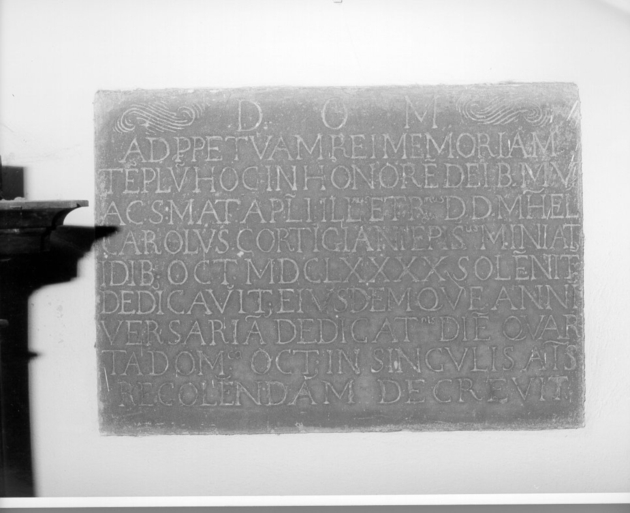 D. O M
AD PPETVAM REI MEMORIAM
TĒPLV HOC IN HONORĒ DEI B. M V
AC S. MAT. APLI ILL^me ET R^me D. D. MHEL
CAROLVS CORTIGIANI EPIS^us MINIAT
IDIB. OCT MDCLXXXX. SOLENIT
DEDICAVIT; EIVSDEMQVE ANNI
VERSARIA DEDICAT^nis DIĒ QVAR
TA DOM^ca OCT. IN SINGVLIS AÑIS
RECOLENDAM DECREVIT.